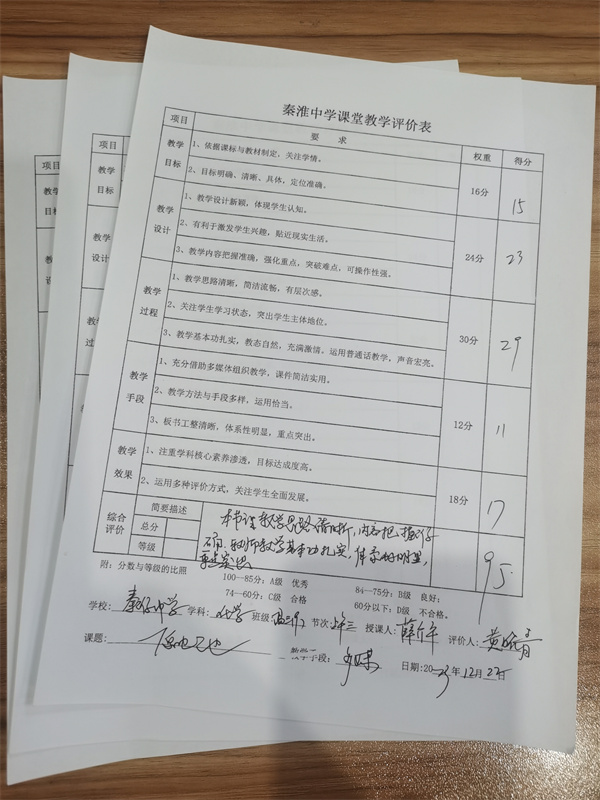 秦淮中学课堂教学评价表
项目 要 求 权重 得分
教学目标 1、依据课标与教材制定，关注学情。 16分 15
2、目标明确、清晰、具体，定位准确。
教学设计 1、教学设计新颖，体现学生认知。 24分 23
2、有利于激发学生兴趣，贴近现实生活。
3、教学内容把握准确，强化重点，突破难点，可操作性强。
教学过程 1、教学思路清晰，简洁流畅，有层次感。 30分 29
2、关注学生学习状态，突出学生主体地位。
3、教学基本功扎实，教态自然，充满激情。运用普通话教学，声音宏亮。
教学手段 1、充分借助多媒体组织教学，课件简洁实用。 12分 11
2、教学方法与手段多样，运用恰当。
3、板书工整清晰，体系性明显，重点突出。
教学效果 1、注重学科核心素养渗透，目标达成度高。 18分 17
2、运用多种评价方式，关注学生全面发展。
综合评价 简要描述 本节课教学思路清晰，内容把握
总分 准确，教师教学基本功扎实， 95
等级
附：分数与等级的比照
100—85分：A级 优秀 84—75分：B级 良好；
74—60分：C级 合格 60分以下：D级 不合格。
学校：秦淮中学 学科：化学 班级 节次 授课人： 评价人：
课题：原电池 教学手段：多媒 日期:2023年12月22日
项目
教学目标
教学设计
项目
教学目标